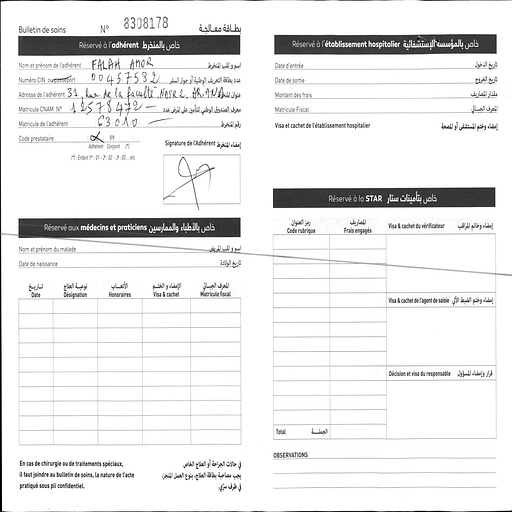 Bulletin de soins N° 8308178 بطاقة معالجة
Réservé à l'adhérent خاص بالمنخرط
Nom et prénom de l'adhérent FALAH AMOR اسم و لقب المنخرط
Numéro CIN ou passeport 00457532 عدد بطاقة التعريف الوطنية أو جواز السفر
Adresse de l'adhérent 31, Rue de la faculté NASR 2 ARIANA عنوان المنخرط
Matricule CNAM N° 12578472 معرف الصندوق الوطني للتأمين على المرض عدد
Matricule de l'adhérent 63010 رقم المنخرط
Code prestataire 99
Adhérent Conjoint (*)
(*) : Enfant 1er : 01 - 2e : 02 - 3e : 03 ... etc
Signature de l'Adhérent إمضاء المنخرط
Réservé aux médecins et praticiens خاص بالأطباء والممارسين
Nom et prénom du malade اسم و لقب المريض
Date de naissance تاريخ الولادة
تاريخ نوعية العلاج الأتعاب الإمضاء و الختم المعرف الجبائي
Date Désignation Honoraires Visa & cachet Matricule fiscal
En cas de chirurgie ou de traitements spéciaux,
il faut joindre au bulletin de soins, la nature de l'acte
pratiqué sous pli confidentiel.
في حالات الجراحة أو العلاج الخاص
يجب مصاحبة بطاقة العلاج، بنوع العمل المنجز،
في ظرف سرّي.
Réservé à l'établissement hospitalier خاص بالمؤسسة الإستشفائية
Date d'entrée تاريخ الدخول
Date de sortie تاريخ الخروج
Montant des frais مقدار المصاريف
Matricule Fiscal المعرف الجبائي
Visa et cachet de l'établissement hospitalier إمضاء وختم المستشفى أو المصحة
Réservé à la STAR خاص بتأمينات ستار
رمز العنوان المصاريف
Code rubrique Frais engagés
Visa & cachet du vérificateur إمضاء وخاتم المراقب
Visa & cachet de l'agent de saisie إمضاء وختم الضبط الآلي
Décision et visa du responsable قرار وإمضاء المسؤول
Total الجملة
OBSERVATIONS